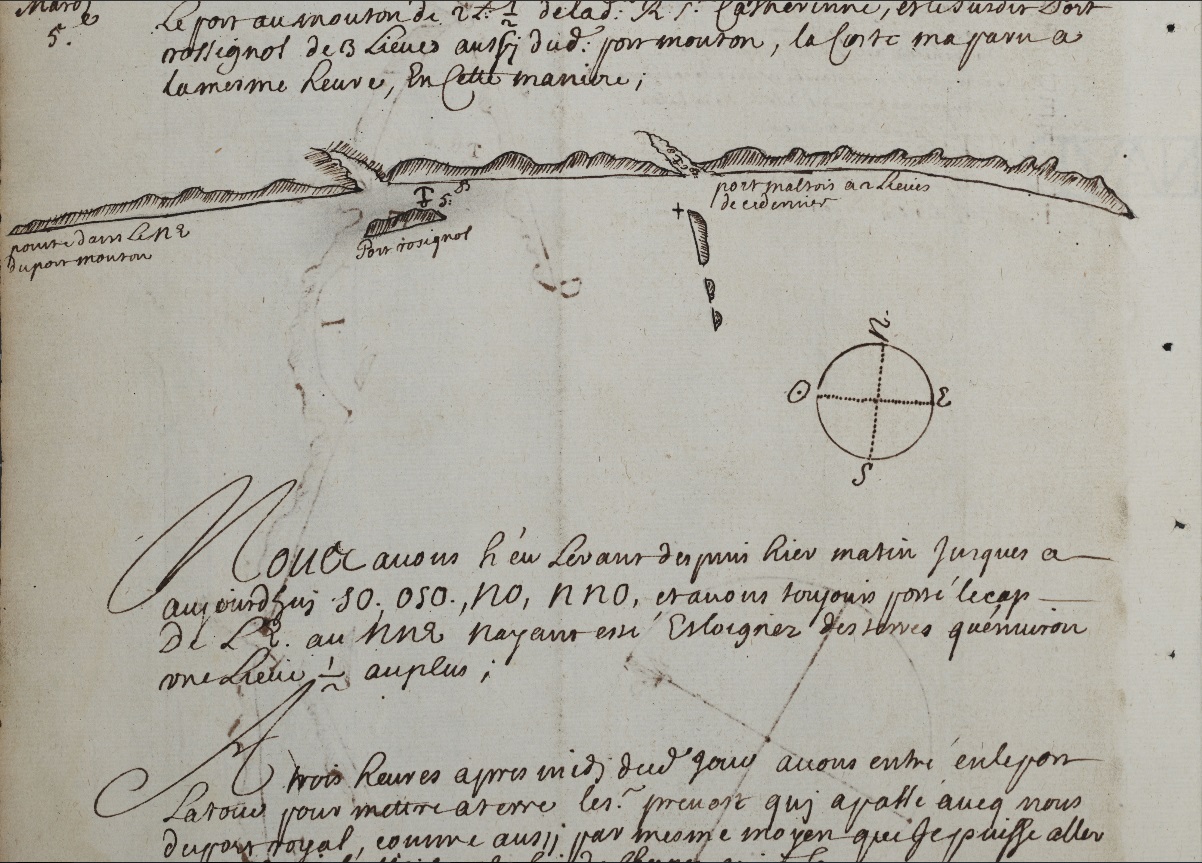 Mardy
5.e
Le port au mouton de 2 L: 1/2 delad: R S.te Catherinne, et le susdit Port
rossignol de 3 Lieues aussy dud: port mouton, la Coste ma paru a
la mesme heure, En Cette maniere;
port maltois a 2 Lieues
de ce dernier
5: B
pointe dans Le NE
du port mouton
Port rosignol
N
O
E
S
Nous avons h'éu Levant despuis hier matin Jusques a
aujourd'huy SO. OSO., NO, NNO, et avons toujours porté le cap
De L'E. au NNE nayant esté Esloignez des terres qu'énuiron
vne Lieüe 1/2 au plus;
A trois heures apres midy dud: jour avons entré én le port
La tour pour mettre a terre le s.r prevost quj a passé aueq nous
du port royal, comme aussy par mesme moyen que Je puisse aller